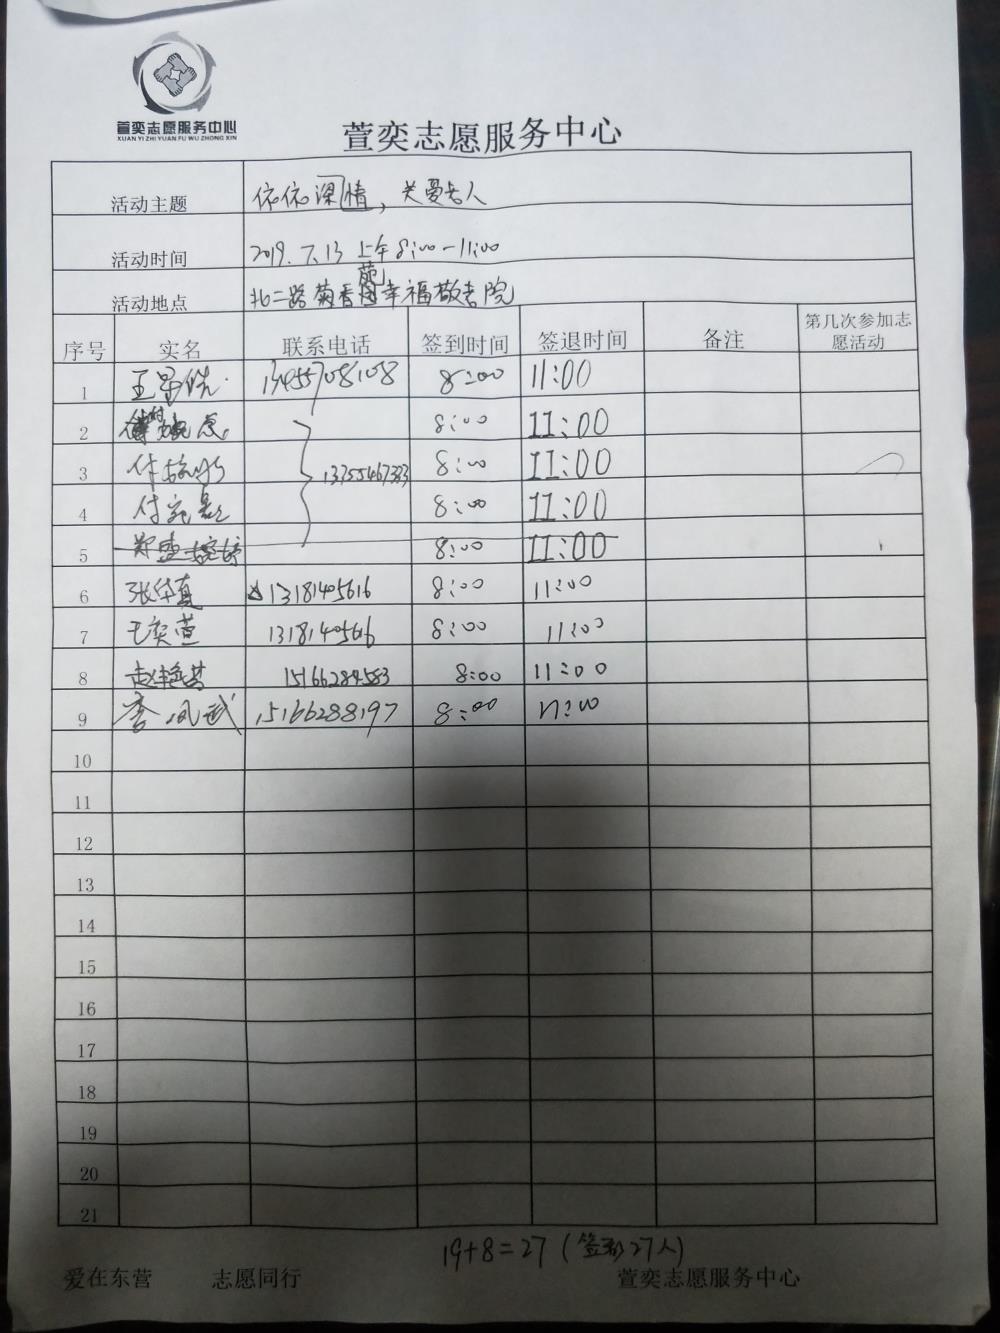 萱奕志愿服务中心
XUAN YI ZHI YUAN FU WU ZHONG XIN
萱奕志愿服务中心
活动主题 依依深情，关爱老人
活动时间 2019.7.13 上午 8:00-11:00
苑
活动地点 北二路菊香园幸福敬老院
序号 实名 联系电话 签到时间 签退时间 备注 第几次参加志愿活动
1 13455708108 8:00 11:00
2 8:00 11:00
3 8:00 11:00
13755467393
4 8:00 11:00
5 8:00 11:00
6 张华真 13181405616 8:00 11:00
7 王奕萱 13181405616 8:00 11:00
8 15166284553 8:00 11:00
9 李凤武 15166288197 8:00 11:00
10
11
12
13
14
15
16
17
18
19
20
21
19+8=27（签到27人）
爱在东营 志愿同行 萱奕志愿服务中心